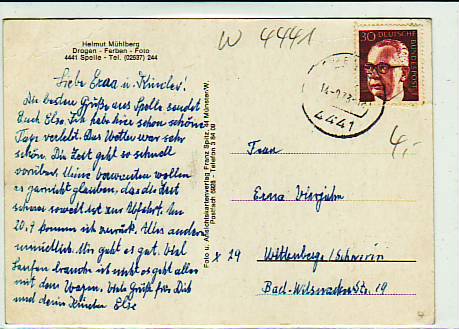 Helmut Mühlberg
Drogen - Farben - Foto
4441 Spelle - Tel. (02537) 244
W 4441
30 DEUTSCHE BUNDESPOST
4441
4,-
Liebe Erna u. Kinder!
Die besten Grüße aus Spelle sendet
Euch Else. Ich habe hier schon schöne
Tage verlebt. Das Wetter war sehr
schön. Die Zeit geht so schnell
vorüber. Meine Verwandten wollen
es garnicht glauben, das die Zeit
schon soweit ist zur Abfahrt. Am
20.9 komme ich zurück. Alles andere
mündlich. Mir geht es gut. Viel
laufen brauche ich nicht es geht alles
mit dem Wagen. Viele Grüße für Dich
und deine Kinder Else
Foto u. Ansichtskartenverlag Franz Spitz, 44 Münster/W.
Postfach 5926 - Telefon 3 84 09
Frau
Erna Vierjahn
X 29 Wittenberge/Schwerin
Bad-Wilsnacker St. 19